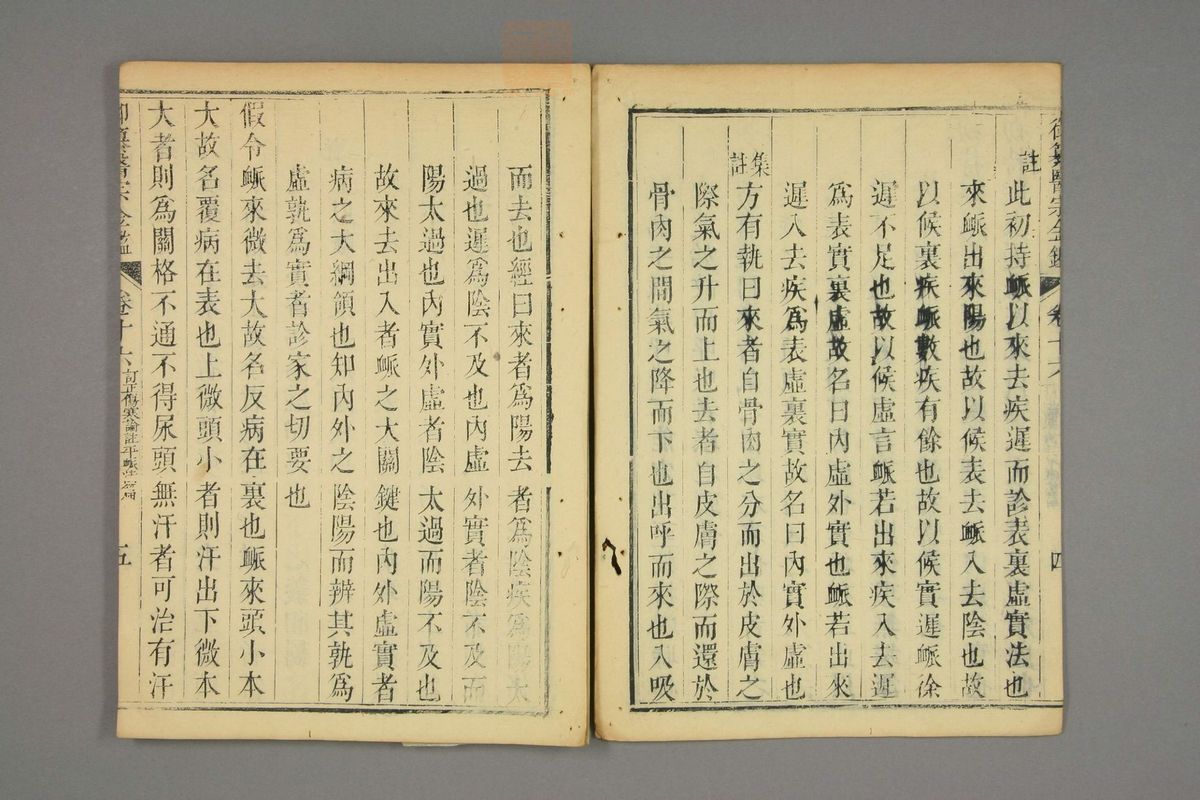 御纂醫宗金鑑 卷十六 四
註
此初持脈以來去疾遲而診表裏虛實法也
來脈出來陽也故以候表去脈入去陰也故
以候裏疾脈數疾有餘也故以候實遲脈徐
遲不足也故以候虛言脈若出來疾入去遲
爲表實裏虛故名曰內虛外實也脈若出來
遲入去疾爲表虛裏實故名曰內實外虛也
集註
方有執曰來者自骨肉之分而出於皮膚之
際氣之升而上也去者自皮膚之際而還於
骨肉之間氣之降而下也出呼而來也入吸
而去也經曰來者爲陽去者爲陰疾爲陽太
過也遲爲陰不及也內虛外實者陰不及而
陽太過也內實外虛者陰太過而陽不及也
故來去出入者脈之大關鍵也內外虛實者
病之大綱領也知內外之陰陽而辨其孰爲
虛孰爲實者診家之切要也
假令脈來微去大故名反病在裏也脈來頭小本
大故名覆病在表也上微頭小者則汗出下微本
大者則爲關格不通不得尿頭無汗者可治有汗
御纂醫宗金鑑 卷十六 訂正傷寒論註平脈法 五